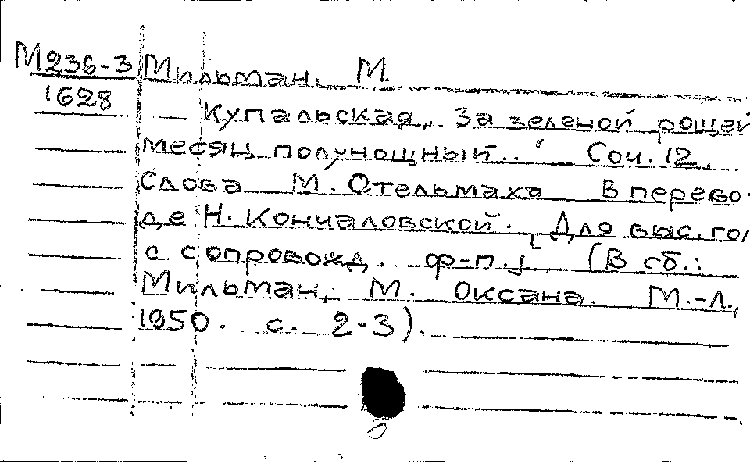 М236-3 Мильман, М.
1628
Купальская. "За зеленой рощей
месяц полунощный..." Соч. 12.
Слова М. Стельмаха в перево-
де Н. Кончаловской. [Для выс. гол.
с сопровожд. ф-п.] (В сб.:
Мильман, М. Оксана. М.-Л.,
1950. с. 2-3).